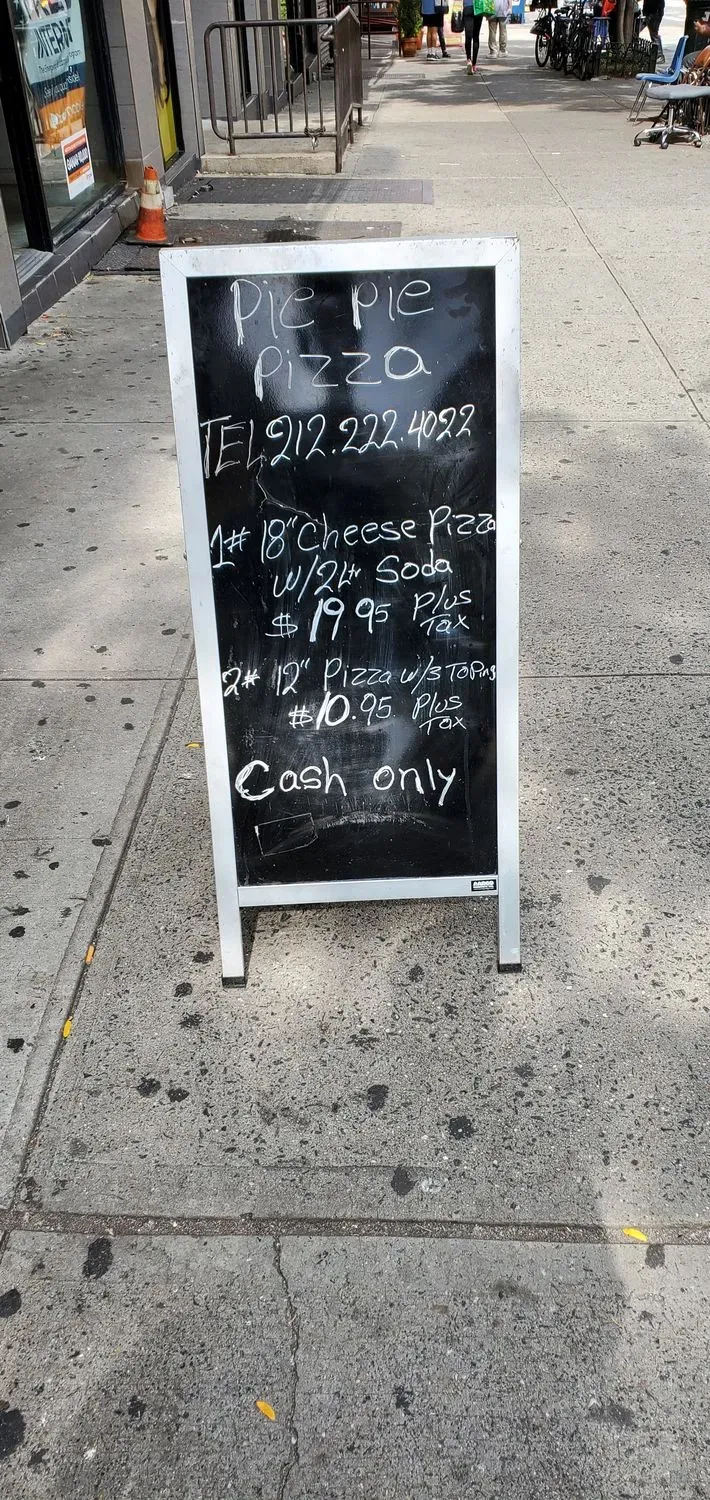 Pie Pie
Pizza
TEL 212.222.4022
1# 18" Cheese Pizza
w/2Ltr Soda
$ 19.95 Plus
Tax
2# 12" Pizza w/3 Toping
$10.95 Plus
Tax
Cash only